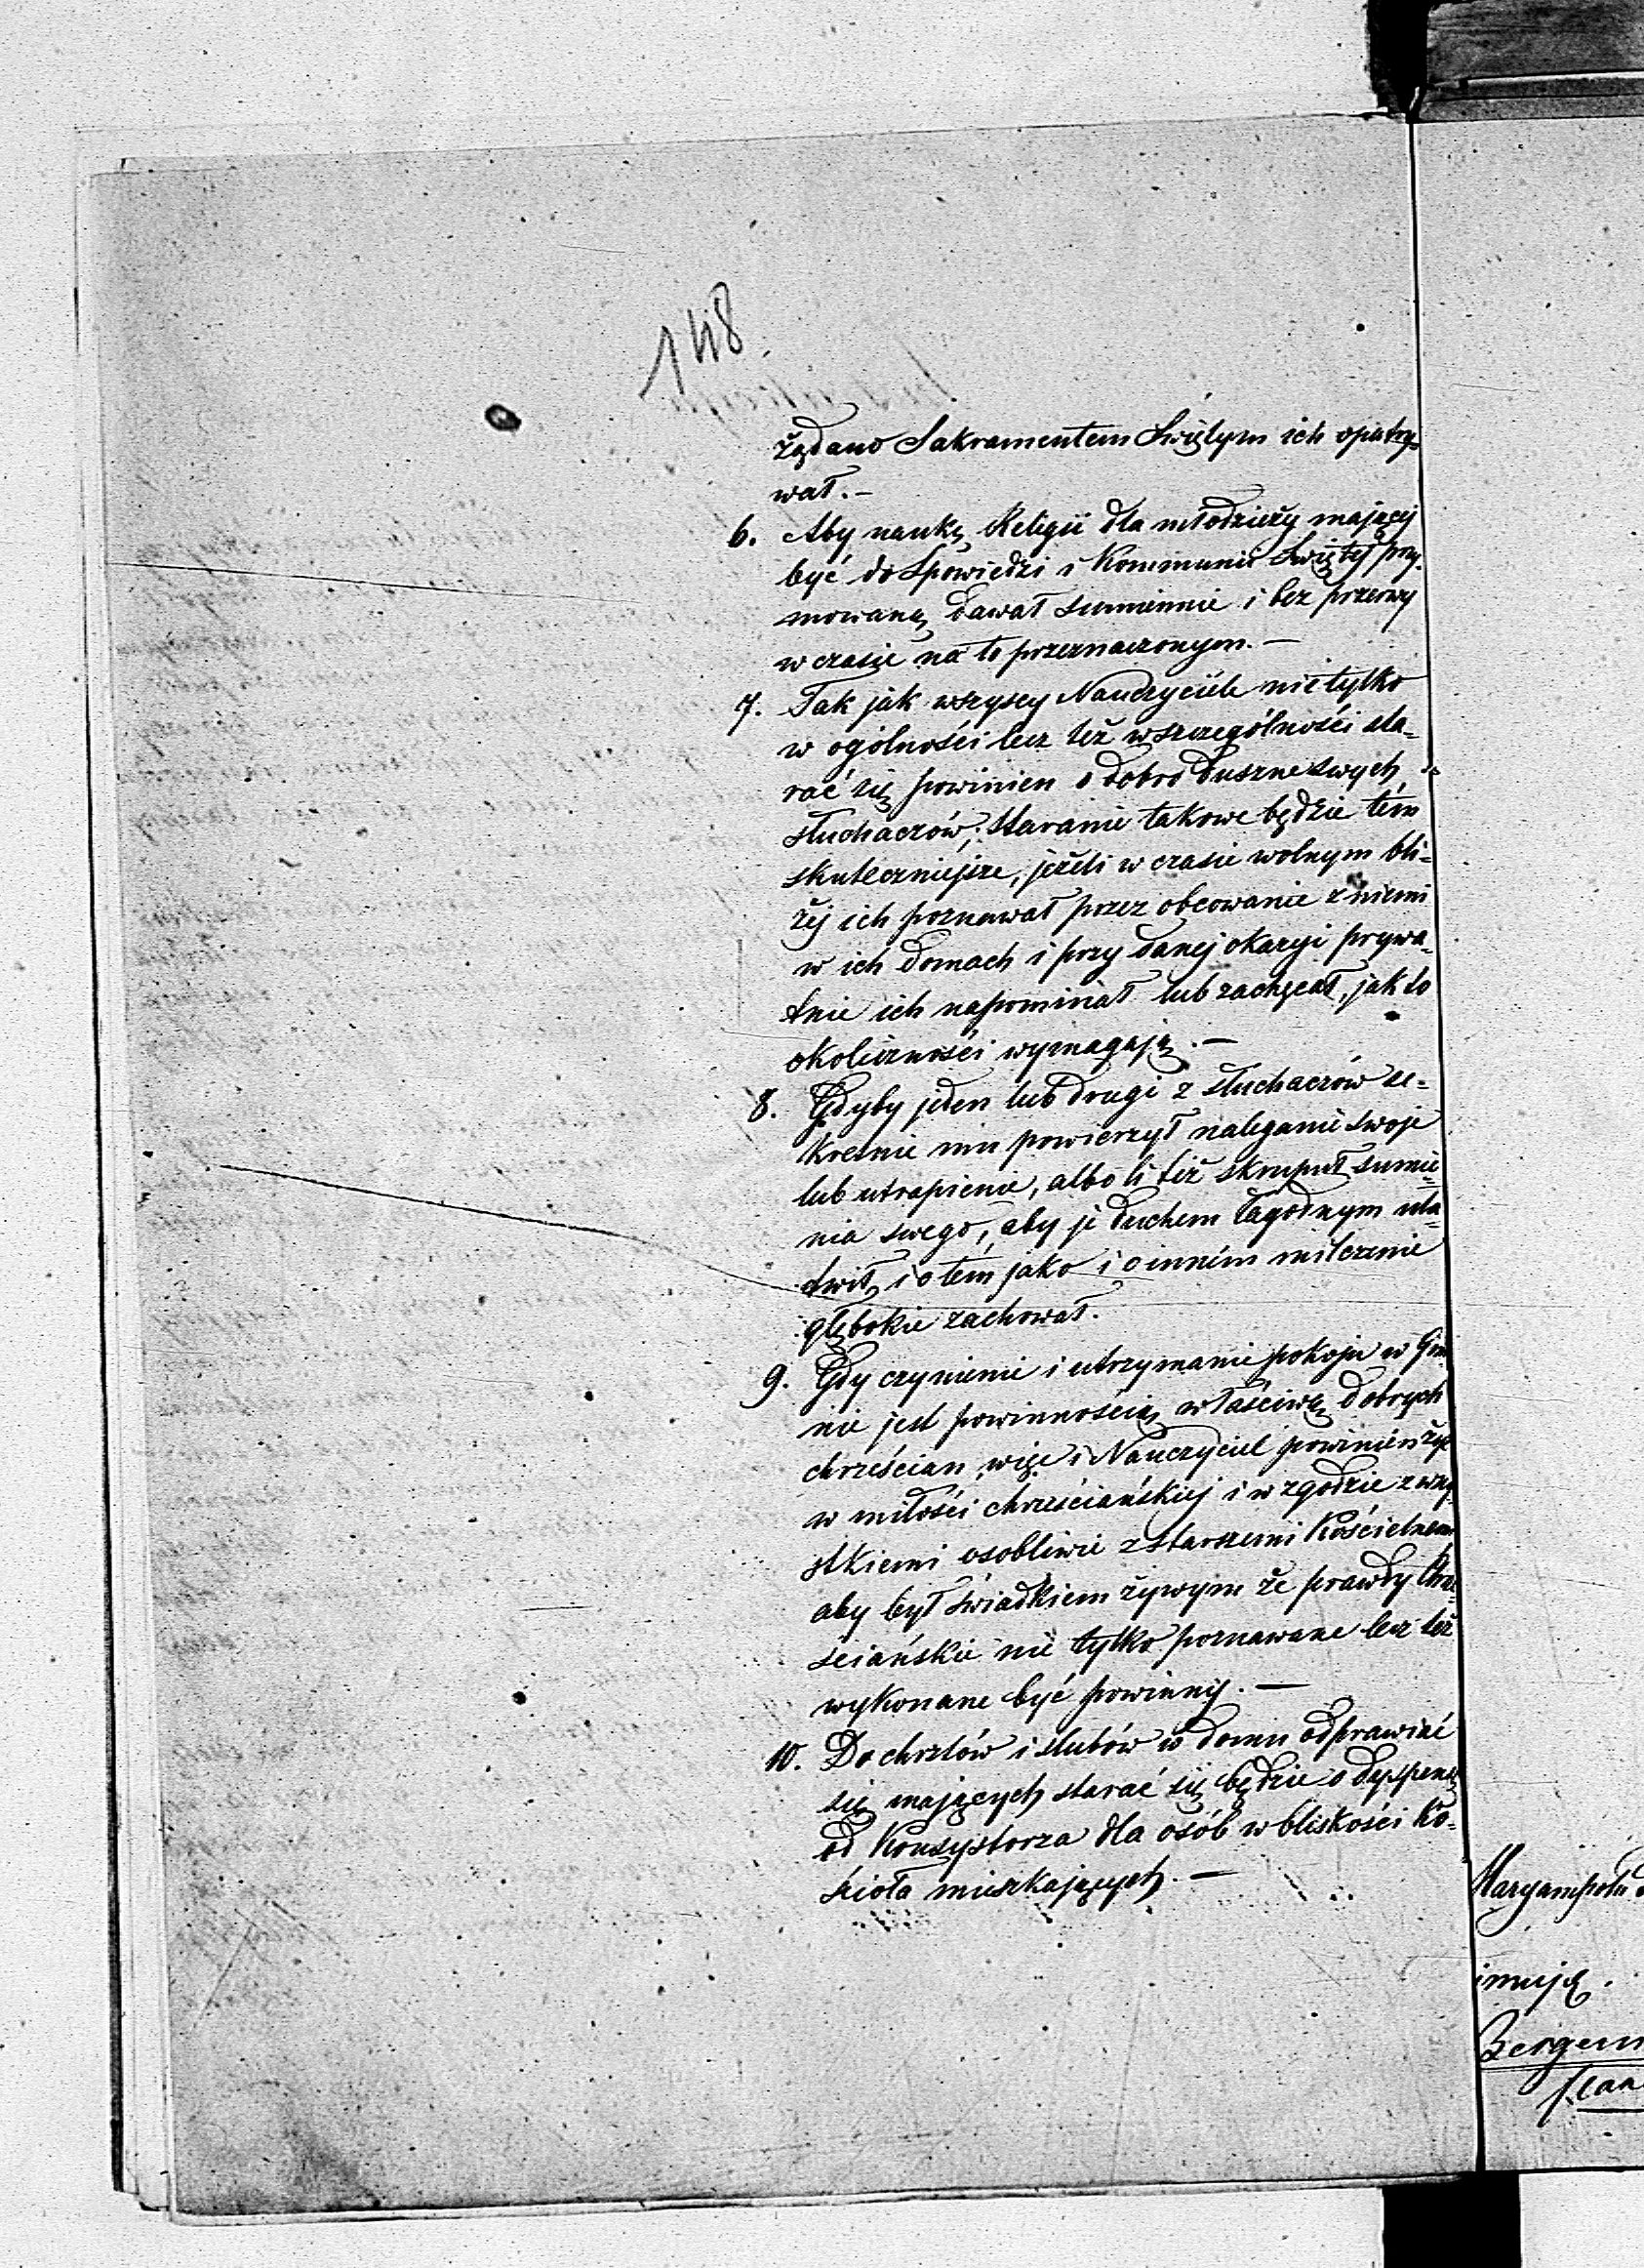 148.
żądano Sakramentem Świętym ich opatry-
wał. —
6. Aby naukę Religii dla młodzieży mającej
być do Spowiedzi i Kommunii Świętej przy-
mowaną dawał sumiennie i bez przerwy
w czasie na to przeznaczonym. —
7. Tak jak wszyscy Nauczyciele nietylko
w ogólności lecz też w szczególności sta-
rać się powinien o dobro duszne swych
słuchaczów; staranie takowe będzie tém
skuteczniejsze, jeżeli w czasie wolnym bli-
żej ich poznawał przez obcowanie z niemi
w ich domach i przy danej okazyi prywa-
tnie ich napominał lub zachęcał, jak to
okoliczności wymagają. —
8. Gdyby jeden lub drugi z słuchaczów se-
kretnie mu powierzył naleganie swoje
lub utrapienie, albo li też skrupuł sumie-
nia swego, aby je duchem łagodnym uła-
twił, i o tém jako i o inném milczenie
głębokie zachował.
9. Gdy czynienie i utrzymanie pokoju w Gmi
nie jest powinnością właściwą dobrych
chrześcian, więc i Nauczyciel powinien żyć
w miłości chrześciańskiej i w zgodzie z wszy-
stkiemi osobliwie z starszemi Kościelnemi
aby był świadkiem żywym że prawdy Chrze-
ściańskie nie tylko poznawane lecz też
wykonane być powinny. —
10. Do chrztów i slubów w domu odprawiać
się mających starać się będzie o dyspensę
od Konsystorza dla osób w bliskości Ko-
ścioła mieszkających. —
Maryampolu
imuję.